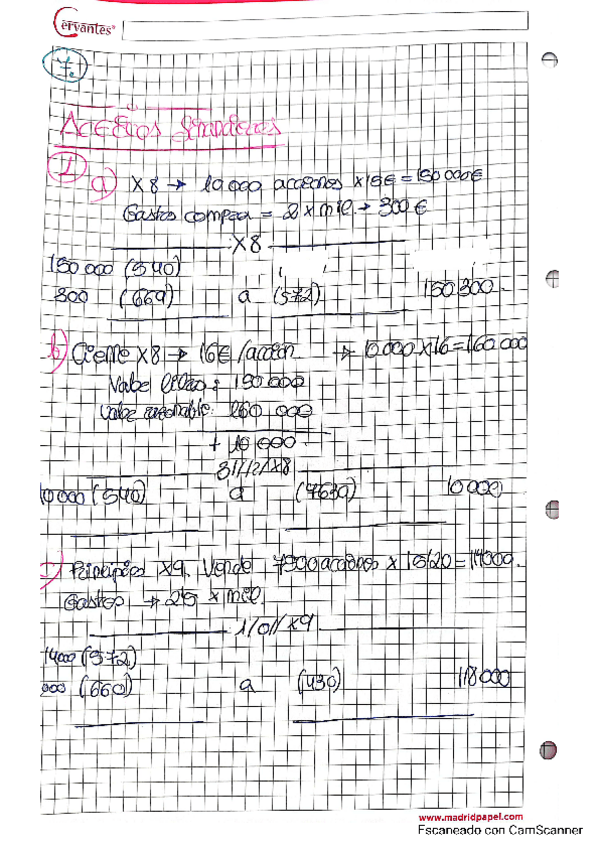 Cervantes
7.
Activos financieros
1
a) X8 → 10 000 acciones x 15€ = 150 000€
Gastos compra = 2 x mil → 300 €
X8
150 000 (540)
300 (669) a (572) 150 300
b) Cierre X8 → 16€/acción → 10 000 x 16 = 160 000
Valor libros: 150 000
Valor razonable: 160 000
+ 10 000
31/12/X8
10 000 (540) a (7630) 10 000
c) Principios X9. Vende 7500 acciones x 15'20 = 114000.
Gastos → 2'5 x mil.
1/01/X9
(572)
(660) a
www.madridpapel.com
Escaneado con CamScanner